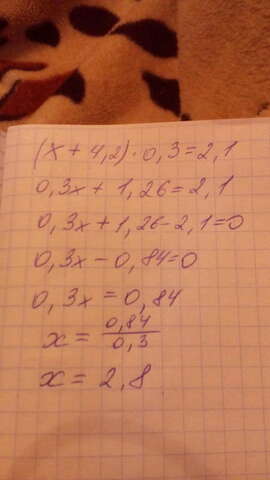 (x + 4,2) · 0,3 = 2,1
0,3x + 1,26 = 2,1
0,3x + 1,26 - 2,1 = 0
0,3x - 0,84 = 0
0,3x = 0,84
x = 0,84/0,3
x = 2,8